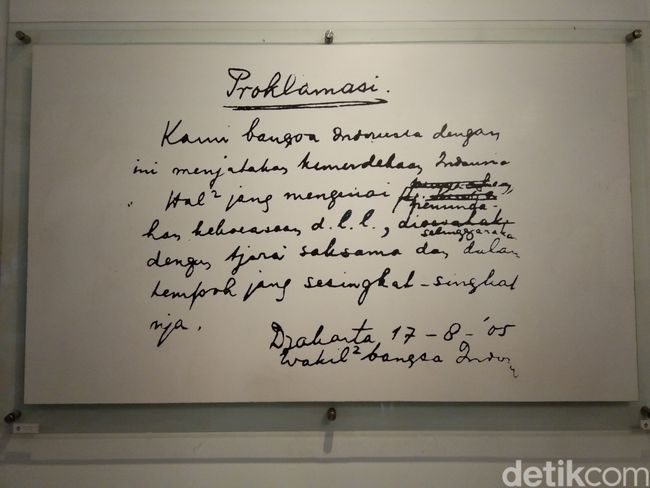 Proklamasi.
Kami bangsa Indonesia dengan
ini menjatakan kemerdekaan Indonesia
Hal² jang mengenai
peminda-
han kekoeasaan d.l.l., dioesahakan
selenggarakan
dengan tjara saksama dan dalam
tempoh jang sesingkat-singkat
nja.
Djakarta, 17-8-'05
Wakil² bangsa Indon
detikcom